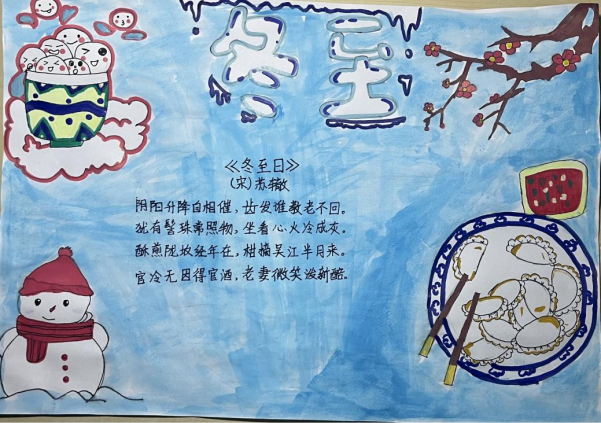 冬至
《冬至日》
(宋)苏辙
阴阳升降自相催，齿发谁教老不回。
犹有髻珠常照物，坐看心火冷成灰。
酥煎陇坂经年在，柑摘吴江半月来。
官冷无因得官酒，老妻微笑泼新醅。